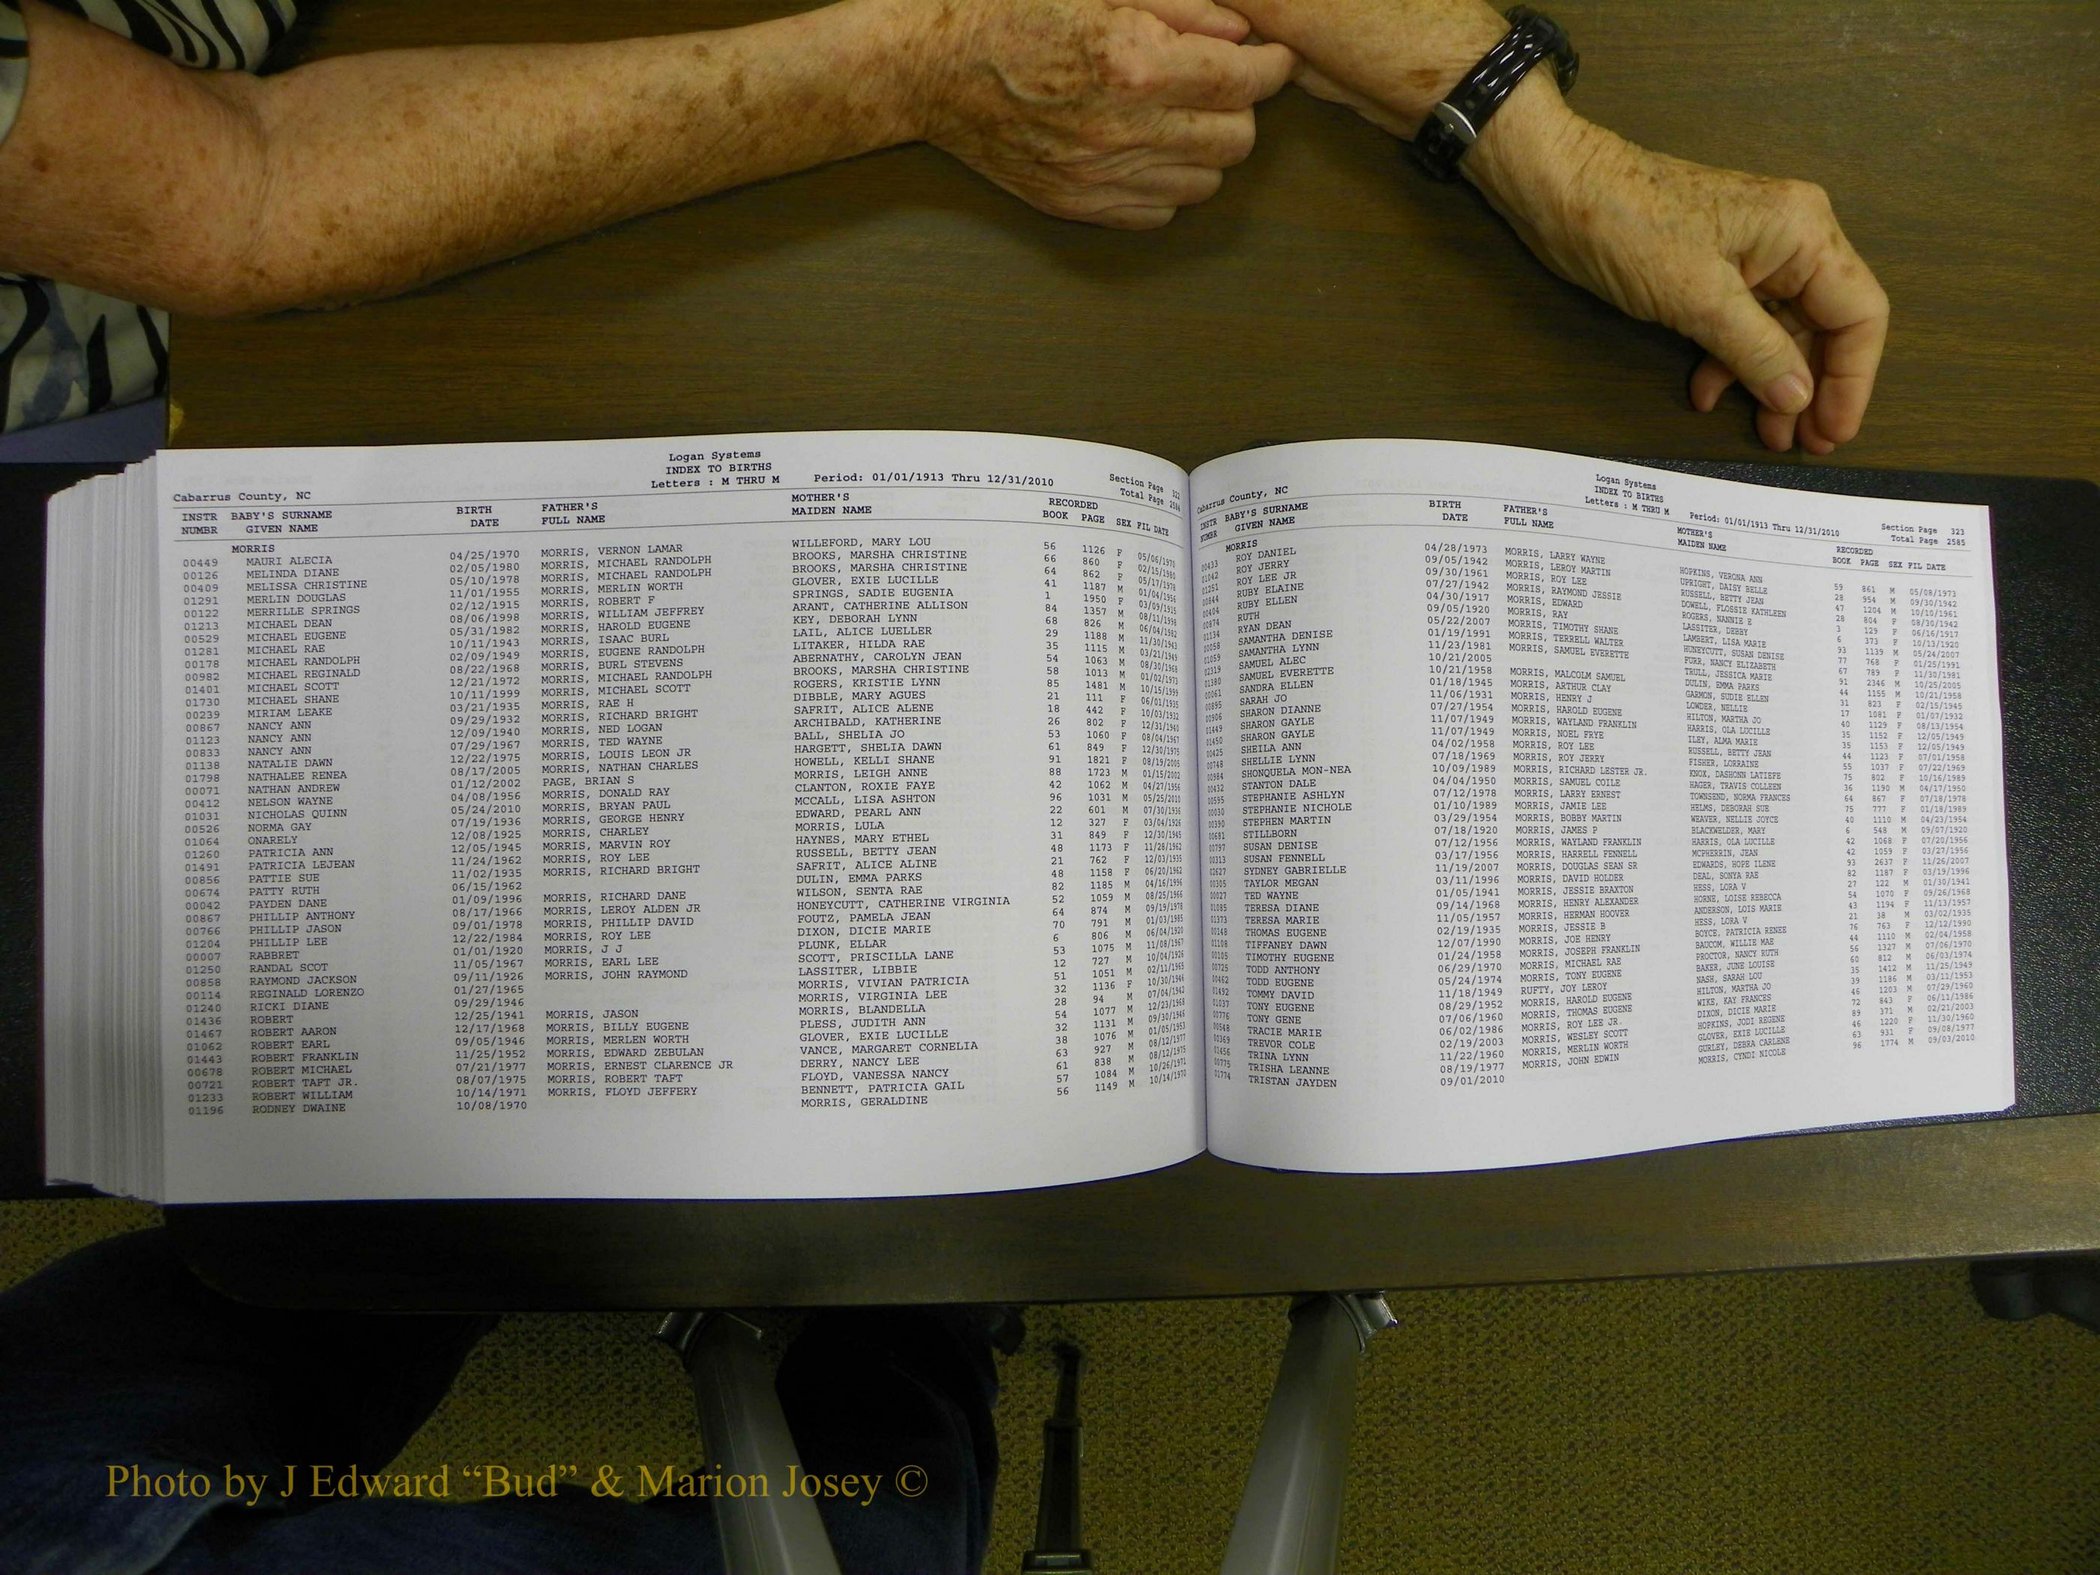 Logan Systems
INDEX TO BIRTHS
Letters : M THRU M Period: 01/01/1913 Thru 12/31/2010 Section Page 322
Cabarrus County, NC Total Page 2584
INSTR BABY'S SURNAME BIRTH FATHER'S MOTHER'S RECORDED
NUMBR GIVEN NAME DATE FULL NAME MAIDEN NAME BOOK PAGE SEX FIL DATE
MORRIS
00449 MAURI ALECIA 04/25/1970 MORRIS, VERNON LAMAR WILLEFORD, MARY LOU 56 1126 F 05/06/1970
00126 MELINDA DIANE 02/05/1980 MORRIS, MICHAEL RANDOLPH BROOKS, MARSHA CHRISTINE 66 860 F 02/15/1980
00409 MELISSA CHRISTINE 05/10/1978 MORRIS, MICHAEL RANDOLPH BROOKS, MARSHA CHRISTINE 64 862 F 05/17/1978
01291 MERLIN DOUGLAS 11/01/1955 MORRIS, MERLIN WORTH GLOVER, EXIE LUCILLE 41 1187 M 01/04/1956
00122 MERRILLE SPRINGS 02/12/1915 MORRIS, ROBERT F SPRINGS, SADIE EUGENIA 1 1950 F 03/09/1915
01213 MICHAEL DEAN 08/06/1998 MORRIS, WILLIAM JEFFREY ARANT, CATHERINE ALLISON 84 1357 M 08/11/1998
00529 MICHAEL EUGENE 05/31/1982 MORRIS, HAROLD EUGENE KEY, DEBORAH LYNN 68 826 M 06/04/1982
01281 MICHAEL RAE 10/11/1943 MORRIS, ISAAC BURL LAIL, ALICE LUELLER 29 1188 M 11/30/1943
00178 MICHAEL RANDOLPH 02/09/1949 MORRIS, EUGENE RANDOLPH LITAKER, HILDA RAE 35 1115 M 03/21/1949
00982 MICHAEL REGINALD 08/22/1968 MORRIS, BURL STEVENS ABERNATHY, CAROLYN JEAN 54 1063 M 08/30/1968
01401 MICHAEL SCOTT 12/21/1972 MORRIS, MICHAEL RANDOLPH BROOKS, MARSHA CHRISTINE 58 1013 M 01/02/1973
01730 MICHAEL SHANE 10/11/1999 MORRIS, MICHAEL SCOTT ROGERS, KRISTIE LYNN 85 1481 M 10/15/1999
00239 MIRIAM LEAKE 03/21/1935 MORRIS, RAE H DIBBLE, MARY AGUES 21 111 F 06/01/1935
00867 NANCY ANN 09/29/1932 MORRIS, RICHARD BRIGHT SAFRIT, ALICE ALENE 18 442 F 10/03/1932
01123 NANCY ANN 12/09/1940 MORRIS, NED LOGAN ARCHIBALD, KATHERINE 26 802 F 12/31/1940
00833 NANCY ANN 07/29/1967 MORRIS, TED WAYNE BALL, SHELIA JO 53 1060 F 08/04/1967
01138 NATALIE DAWN 12/22/1975 MORRIS, LOUIS LEON JR HARGETT, SHELIA DAWN 61 849 F 12/30/1975
01798 NATHALEE RENEA 08/17/2005 MORRIS, NATHAN CHARLES HOWELL, KELLI SHANE 91 1821 F 08/19/2005
00071 NATHAN ANDREW 01/12/2002 PAGE, BRIAN S MORRIS, LEIGH ANNE 88 1723 M 01/15/2002
00412 NELSON WAYNE 04/08/1956 MORRIS, DONALD RAY CLANTON, ROXIE FAYE 42 1062 M 04/27/1956
01031 NICHOLAS QUINN 05/24/2010 MORRIS, BRYAN PAUL MCCALL, LISA ASHTON 96 1031 M 05/25/2010
00526 NORMA GAY 07/19/1936 MORRIS, GEORGE HENRY EDWARD, PEARL ANN 22 601 M 07/30/1936
01064 ONARELY 12/08/1925 MORRIS, CHARLEY MORRIS, LULA 12 327 F 03/04/1926
01260 PATRICIA ANN 12/05/1945 MORRIS, MARVIN ROY HAYNES, MARY ETHEL 31 849 F 12/30/1945
01491 PATRICIA LEJEAN 11/24/1962 MORRIS, ROY LEE RUSSELL, BETTY JEAN 48 1173 F 11/28/1962
00856 PATTIE SUE 11/02/1935 MORRIS, RICHARD BRIGHT SAFRIT, ALICE ALINE 21 762 F 12/03/1935
00674 PATTY RUTH 06/15/1962 DULIN, EMMA PARKS 48 1158 F 06/20/1962
00042 PAYDEN DANE 01/09/1996 MORRIS, RICHARD DANE WILSON, SENTA RAE 82 1185 M 04/16/1996
00867 PHILLIP ANTHONY 08/17/1966 MORRIS, LEROY ALDEN JR HONEYCUTT, CATHERINE VIRGINIA 52 1059 M 08/25/1966
00766 PHILLIP JASON 09/01/1978 MORRIS, PHILLIP DAVID FOUTZ, PAMELA JEAN 64 874 M 09/19/1978
01204 PHILLIP LEE 12/22/1984 MORRIS, ROY LEE DIXON, DICIE MARIE 70 791 M 01/03/1985
00007 RABBRET 01/01/1920 MORRIS, J J PLUNK, ELLAR 6 806 M 06/04/1920
01250 RANDAL SCOT 11/05/1967 MORRIS, EARL LEE SCOTT, PRISCILLA LANE 53 1075 M 11/08/1967
00858 RAYMOND JACKSON 09/11/1926 MORRIS, JOHN RAYMOND LASSITER, LIBBIE 12 727 M 10/04/1926
00114 REGINALD LORENZO 01/27/1965 MORRIS, VIVIAN PATRICIA 51 1051 M 02/11/1965
01240 RICKI DIANE 09/29/1946 MORRIS, VIRGINIA LEE 32 1136 F 10/30/1946
01436 ROBERT 12/25/1941 MORRIS, JASON MORRIS, BLANDELLA 28 94 M 07/04/1942
01467 ROBERT AARON 12/17/1968 MORRIS, BILLY EUGENE PLESS, JUDITH ANN 54 1077 M 12/23/1968
01062 ROBERT EARL 09/05/1946 MORRIS, MERLEN WORTH GLOVER, EXIE LUCILLE 32 1131 M 09/30/1946
01443 ROBERT FRANKLIN 11/25/1952 MORRIS, EDWARD ZEBULAN VANCE, MARGARET CORNELIA 38 1076 M 01/05/1953
00678 ROBERT MICHAEL 07/21/1977 MORRIS, ERNEST CLARENCE JR DERRY, NANCY LEE 63 927 M 08/12/1977
00721 ROBERT TAFT JR. 08/07/1975 MORRIS, ROBERT TAFT FLOYD, VANESSA NANCY 61 838 M 08/12/1975
01233 ROBERT WILLIAM 10/14/1971 MORRIS, FLOYD JEFFERY BENNETT, PATRICIA GAIL 57 1084 M 10/26/1971
01196 RODNEY DWAINE 10/08/1970 MORRIS, GERALDINE 56 1149 M 10/14/1970
Logan Systems
INDEX TO BIRTHS
Letters : M THRU M Period: 01/01/1913 Thru 12/31/2010 Section Page 323
Cabarrus County, NC Total Page 2585
INSTR BABY'S SURNAME BIRTH FATHER'S MOTHER'S RECORDED
NUMBR GIVEN NAME DATE FULL NAME MAIDEN NAME BOOK PAGE SEX FIL DATE
MORRIS
00433 ROY DANIEL 04/28/1973 MORRIS, LARRY WAYNE HOPKINS, VERONA ANN 59 861 M 05/08/1973
01042 ROY JERRY 09/05/1942 MORRIS, LEROY MARTIN UPRIGHT, DAISY BELLE 28 954 M 09/30/1942
01251 ROY LEE JR 09/30/1961 MORRIS, ROY LEE RUSSELL, BETTY JEAN 47 1204 M 10/10/1961
00844 RUBY ELAINE 07/27/1942 MORRIS, RAYMOND JESSIE DOWELL, FLOSSIE KATHLEEN 28 804 F 08/30/1942
00404 RUBY ELLEN 04/30/1917 MORRIS, EDWARD ROGERS, NANNIE E 3 129 F 06/16/1917
00874 RUTH 09/05/1920 MORRIS, RAY LASSITER, DEBBY 6 373 F 10/13/1920
01134 RYAN DEAN 05/22/2007 MORRIS, TIMOTHY SHANE LAMBERT, LISA MARIE 93 1139 M 05/24/2007
00058 SAMANTHA DENISE 01/19/1991 MORRIS, TERRELL WALTER HUNEYCUTT, SUSAN DENISE 77 768 F 01/25/1991
01059 SAMANTHA LYNN 11/23/1981 MORRIS, SAMUEL EVERETTE FURR, NANCY ELIZABETH 67 789 F 11/30/1981
02319 SAMUEL ALEC 10/21/2005 TRULL, JESSICA MARIE 91 2346 M 10/25/2005
01380 SAMUEL EVERETTE 10/21/1958 MORRIS, MALCOLM SAMUEL DULIN, EMMA PARKS 44 1155 M 10/21/1958
00061 SANDRA ELLEN 01/18/1945 MORRIS, ARTHUR CLAY GARMON, SUDIE ELLEN 31 823 F 02/15/1945
00895 SARAH JO 11/06/1931 MORRIS, HENRY J LOWDER, NELLIE 17 1081 F 01/07/1932
00906 SHARON DIANNE 07/27/1954 MORRIS, HAROLD EUGENE HILTON, MARTHA JO 40 1129 F 08/13/1954
01449 SHARON GAYLE 11/07/1949 MORRIS, WAYLAND FRANKLIN HARRIS, OLA LUCILLE 35 1152 F 12/05/1949
01450 SHARON GAYLE 11/07/1949 MORRIS, NOEL FRYE ILEY, ALMA MARIE 35 1153 F 12/05/1949
00425 SHEILA ANN 04/02/1958 MORRIS, ROY LEE RUSSELL, BETTY JEAN 44 1123 F 07/01/1958
00748 SHELLIE LYNN 07/18/1969 MORRIS, ROY JERRY FISHER, LORRAINE 55 1037 F 07/22/1969
00984 SHONQUELA MON-NEA 10/09/1989 MORRIS, RICHARD LESTER JR. KNOX, DASHONN LATIEFE 75 802 F 10/16/1989
00432 STANTON DALE 04/04/1950 MORRIS, SAMUEL COILE HAGER, TRAVIS COLLEEN 36 1190 M 04/17/1950
00595 STEPHANIE ASHLYN 07/12/1978 MORRIS, LARRY ERNEST TOWNSEND, NORMA FRANCES 64 867 F 07/18/1978
00030 STEPHANIE NICHOLE 01/10/1989 MORRIS, JAMIE LEE HELMS, DEBORAH SUE 75 777 F 01/18/1989
00390 STEPHEN MARTIN 03/29/1954 MORRIS, BOBBY MARTIN WEAVER, NELLIE JOYCE 40 1110 M 04/23/1954
00681 STILLBORN 07/18/1920 MORRIS, JAMES P BLACKWELDER, MARY 6 548 M 09/07/1920
00797 SUSAN DENISE 07/12/1956 MORRIS, WAYLAND FRANKLIN HARRIS, OLA LUCILLE 42 1068 F 07/20/1956
00313 SUSAN FENNELL 03/17/1956 MORRIS, HARRELL FENNELL MCPHERRIN, JEAN 42 1059 F 03/27/1956
02627 SYDNEY GABRIELLE 11/19/2007 MORRIS, DOUGLAS SEAN SR EDWARDS, HOPE ILENE 93 2637 F 11/26/2007
00305 TAYLOR MEGAN 03/11/1996 MORRIS, DAVID HOLDER DEAL, SONYA RAE 82 1187 F 03/19/1996
00027 TED WAYNE 01/05/1941 MORRIS, JESSIE BRAXTON HESS, LORA V 27 122 M 01/30/1941
01085 TERESA DIANE 09/14/1968 MORRIS, HENRY ALEXANDER HORNE, LOISE REBECCA 54 1070 F 09/26/1968
01373 TERESA MARIE 11/05/1957 MORRIS, HERMAN HOOVER ANDERSON, LOIS MARIE 43 1194 F 11/13/1957
00148 THOMAS EUGENE 02/19/1935 MORRIS, JESSIE B HESS, LORA V 21 38 M 03/02/1935
01108 TIFFANEY DAWN 12/07/1990 MORRIS, JOE HENRY BOYCE, PATRICIA RENEE 76 763 F 12/12/1990
00105 TIMOTHY EUGENE 01/24/1958 MORRIS, JOSEPH FRANKLIN BAUCOM, WILLIE MAE 44 1110 M 02/04/1958
00725 TODD ANTHONY 06/29/1970 MORRIS, MICHAEL RAE PROCTOR, NANCY RUTH 56 1327 M 07/06/1970
00462 TODD EUGENE 05/24/1974 MORRIS, TONY EUGENE BAKER, JUNE LOUISE 60 812 M 06/03/1974
01492 TOMMY DAVID 11/18/1949 RUFTY, JOY LEROY NASH, SARAH LOU 35 1412 M 11/25/1949
01037 TONY EUGENE 08/29/1952 MORRIS, HAROLD EUGENE HILTON, MARTHA JO 39 1186 M 03/11/1953
00776 TONY GENE 07/06/1960 MORRIS, THOMAS EUGENE WIKE, KAY FRANCES 46 1203 M 07/29/1960
00548 TRACIE MARIE 06/02/1986 MORRIS, ROY LEE JR. DIXON, DICIE MARIE 72 843 F 06/11/1986
00369 TREVOR COLE 02/19/2003 MORRIS, WESLEY SCOTT HOPKINS, JODI REGENE 89 371 M 02/21/2003
01456 TRINA LYNN 11/22/1960 MORRIS, MERLIN WORTH GLOVER, EXIE LUCILLE 46 1220 F 11/30/1960
00775 TRISHA LEANNE 08/19/1977 MORRIS, JOHN EDWIN GURLEY, DEBRA CARLENE 63 931 F 09/08/1977
01774 TRISTAN JAYDEN 09/01/2010 MORRIS, CYNDI NICOLE 96 1774 M 09/03/2010
Photo by J Edward “Bud” & Marion Josey ©